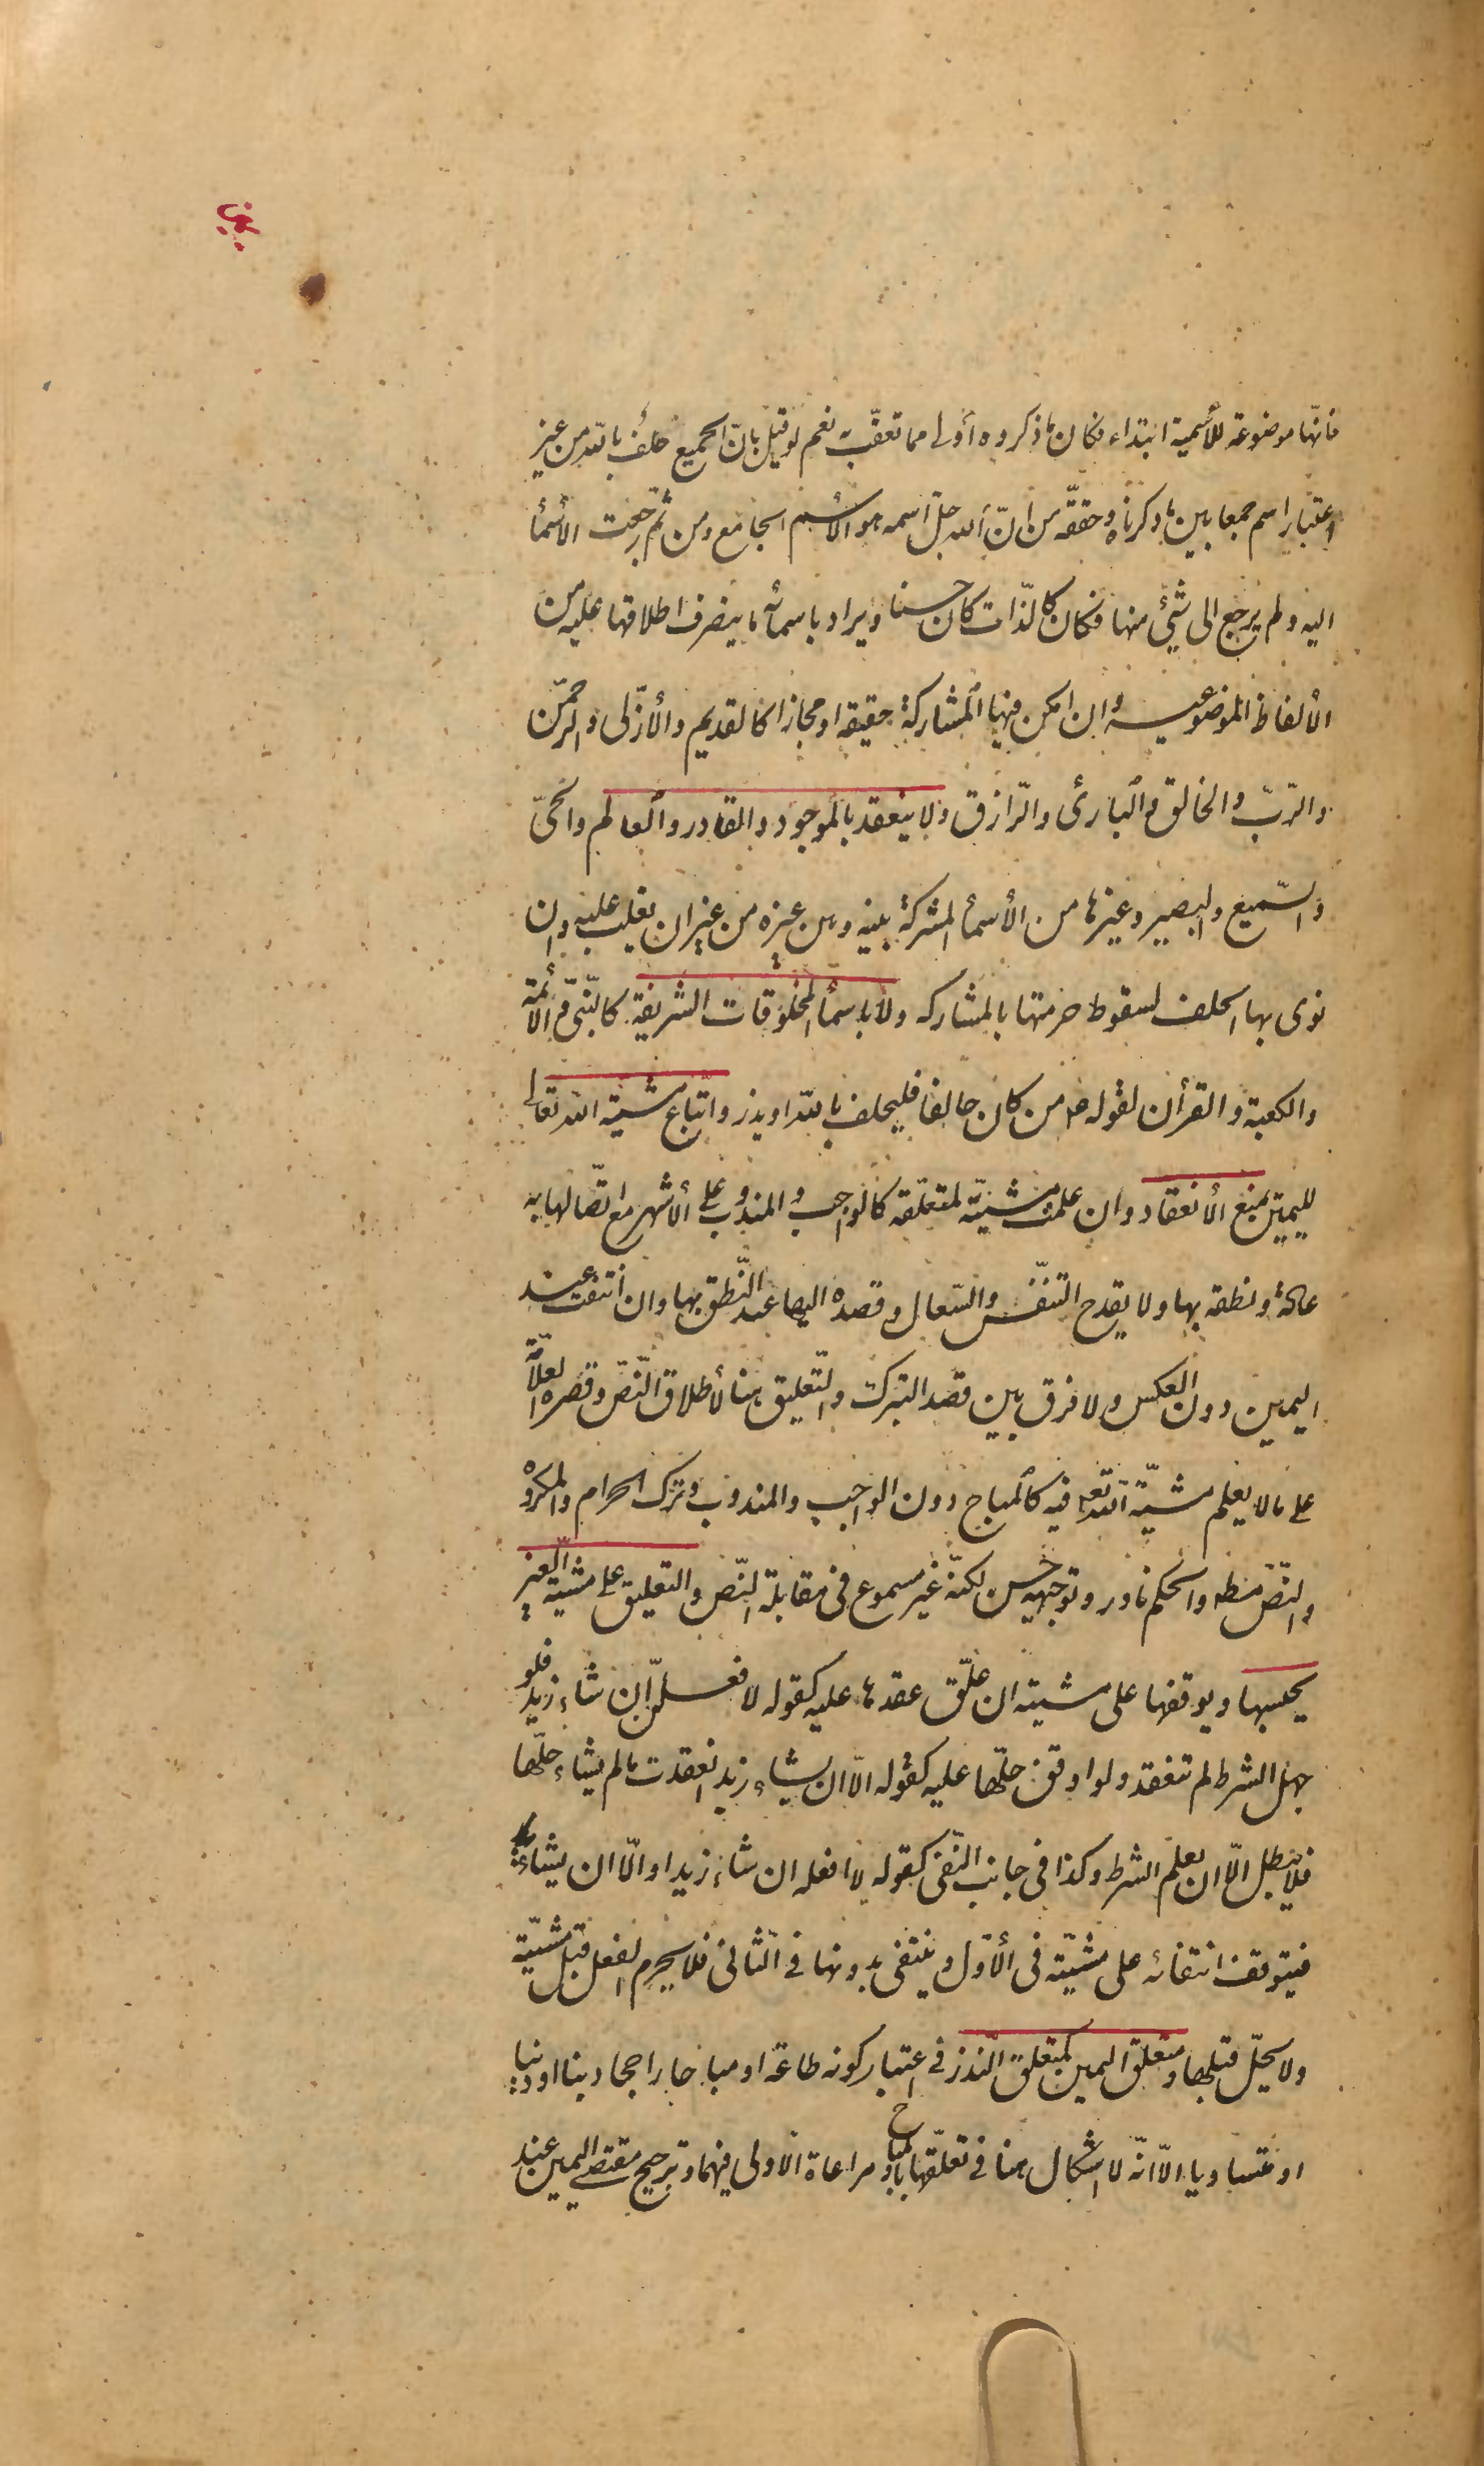 يمين
فانّها موضوعة للأسمية ابتداء فكان ما ذكروه أولى مما تعقّب به نعم لو قيل بانّ الجميع حلف بالله من غير
اعتبار اسم جمعا بين ما ذكرناه وحققه من انّ الله جلّ اسمه هو الاسم الجامع ومن ثم رجعت الأسمأ
اليه ولم يرجع الى شئ منها فكان كالذّات كان حسنا ويراد باسمائه ما ينصرف اطلاقها عليه من
الألفاظ الموضوعة وان امكن فيها المشاركة حقيقه او مجازا كالقديم والأزلى والرحمن
والرّبّ والخالق والبارئ والرّازق ولا ينعقد بالموجود والقادر والعالم والحىّ
والسّميع والبصير وغيرها من الأسمأ المشتركة بينه وبين غيره من غير ان يغلب عليه وان
نوى بها الحلف لسقوط حرمتها بالمشاركه ولا باسمأ المخلوقات الشريفة كالنّبىّ والأئمة
والكعبة والقرأن لقوله ص من كان حالفا فليحلف بالله او يذر واتّباع مشيّة الله تعالى
لليمين يمنع الأنعقاد وان علمت مشيّته لمتعلّقه كالواجب والمندوب على الأشهر مع اتّصالها به
عادة ونطقه بها ولا يقدح التنفّس والسّعال وقصده اليها عند النّطق بها وان انتفت عند
اليمين دون العكس ولا فرق بين قصد التبرّك والتّعليق هنا لأطلاق النّصّ وقصره العلّامة
على ما لا يعلم مشيّة الله تعالى فيه كالمباح دون الواجب والمندوب وترك الحرام والمكروه
والنّصّ مطلق والحكم نادر وتوجيهه حسن لكنّه غير مسموع فى مقابلة النّصّ والتعليق على مشيّة الغير
يحبسها ويوقفها على مشيته ان علّق عقدها عليه كقوله لافعلنّ ان شاء زيد فلو
جهل الشرط لم تنعقد ولو اوقف حلّها عليه كقوله الّا ان يشاء زيد انعقدت ما لم يشاء حلّها
فلا تبطل الّا ان يعلم الشرط وكذا فى جانب النّفى كقوله لا افعله ان شاء زيد او الّا ان يشاء
فيتوقف انتفائه على مشيّته فى الأوّل وينتفى بدونها فى الثانى فلا يحرم الفعل قبل مشيّته
ولا يحلّ قبلها ومتعلق اليمين كمتعلق النّذر فى اعتبار كونه طاعة او مباحا راجحا دينا او دنيا
او متساويا الّا انّه لا اشكال هنا فى تعلّقها بالمباح ومراعاة الاولى فيهما وترجيح مقتضى اليمين عند